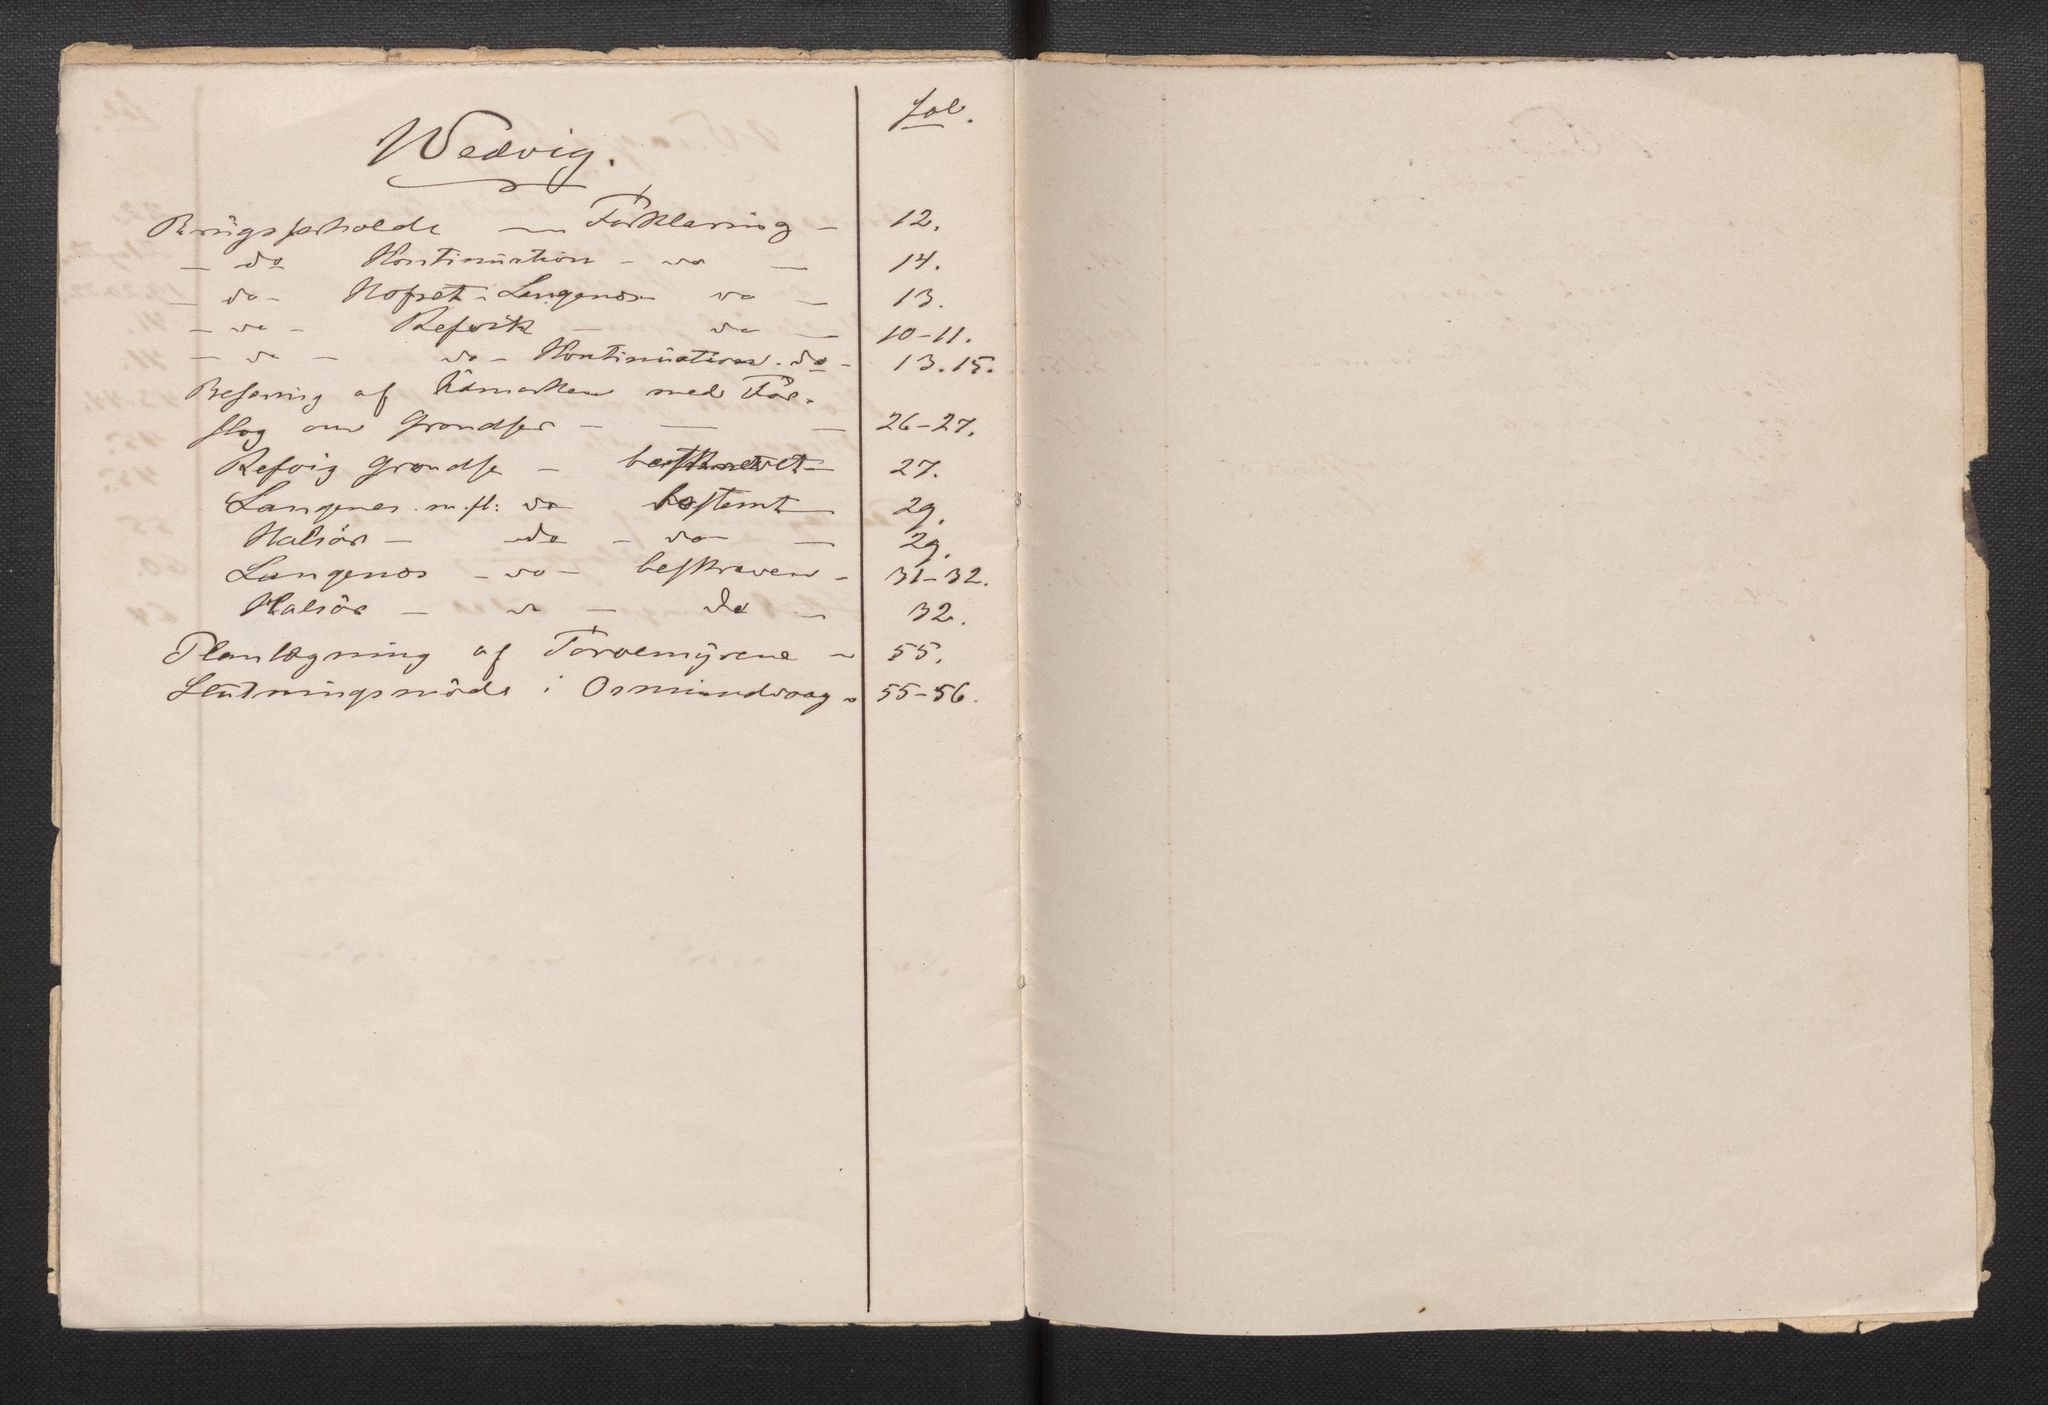 Wedvig.
fol.
Brügsforholde — Forklaring — 12.
— do Kontinuation — do — 14.
— do — Hofset i Langenes do — 13.
— do — Refvik — do — 10-11.
— do — do — Kontinuation. do — 13. 15.
Befaring af Udmarken med For-
slag om Grændser — — — 26-27.
Refvig Grændse — — 27.
Langenes m. fl: do bestemt 29.
Halsör — do — do — 29.
Langenes — do — beskreven — 31-32.
Halsör — do — do — 32.
Planlægning af Torvemyrene — 55.
Slutningsmöde i Osmundvaag — 55-56.